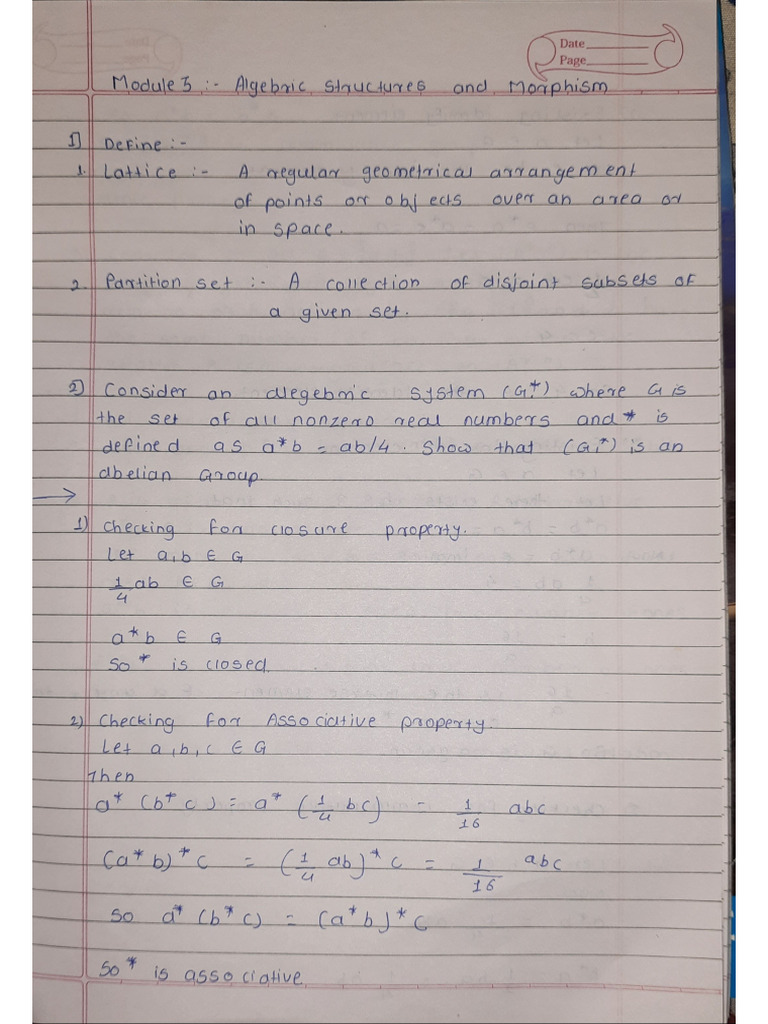 Date
Page
Module 3 :- Algebric structures and Morphism
1) Define :-
1. Lattice :- A regular geometrical arrangement
of points or objects over an area or
in space.
2. Partition set :- A collection of disjoint subsets of
a given set.
2) Consider an alegebric system (G,*) where G is
the set of all nonzero real numbers and * is
defined as a*b = ab/4. Show that (G,*) is an
abelian Group.
→
1) Checking for closure property.
Let a,b ∈ G
1/4 ab ∈ G
a*b ∈ G
So * is closed.
2) Checking for Associative property.
Let a,b,c ∈ G
Then
a* (b*c) = a* (1/4 bc) = 1/16 abc
(a*b)*c = (1/4 ab)*c = 1/16 abc
So a* (b*c) = (a*b)*c
So * is associative